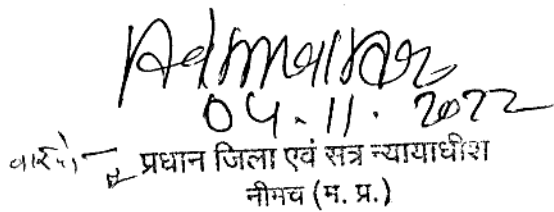 04.11.2022
प्रधान जिला एवं सत्र न्यायाधीश
नीमच (म. प्र.)